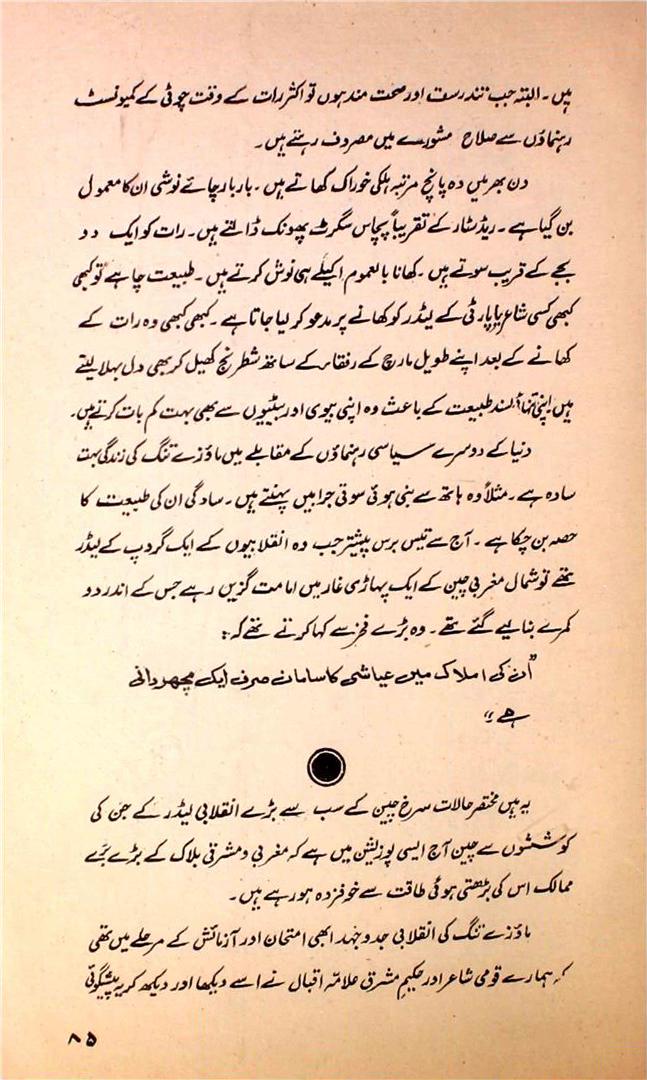 ہیں۔ البتہ جب تندرست اور صحت مند ہوں تو اکثر رات کے وقت چوٹی کے کمیونسٹ
رہنماؤں سے صلاح مشورے میں مصروف رہتے ہیں۔
دن بھر میں وہ پانچ مرتبہ ہلکی خوراک کھاتے ہیں۔ بار بار چائے نوشی ان کا معمول
بن گیا ہے۔ ریڈ سٹار کے تقریباً پچاس سگرٹ پھونک ڈالتے ہیں۔ رات کو ایک دو
بجے کے قریب سوتے ہیں۔ کھانا بالعموم اکیلے ہی نوش کرتے ہیں۔ طبیعت چاہے تو کبھی
کبھی کسی شاعر یا پارٹی کے لیڈر کو کھانے پر مدعو کر لیا جاتا ہے۔ کبھی کبھی وہ رات کے
کھانے کے بعد اپنے طویل مارچ کے رفقاء کے ساتھ شطرنج کھیل کر بھی دل بہلا لیتے
ہیں اپنی تنہا پسند طبیعت کے باعث وہ اپنی بیوی اور بیٹیوں سے بھی بہت کم بات کرتے ہیں۔
دنیا کے دوسرے سیاسی رہنماؤں کے مقابلے میں ماؤزے تنگ کی زندگی بہت
سادہ ہے۔ مثلاً وہ ہاتھ سے بنی ہوئی سوتی جرابیں پہنتے ہیں۔ سادگی ان کی طبیعت کا
حصہ بن چکا ہے۔ آج سے تیس برس پیشتر جب وہ انقلابیوں کے ایک گروپ کے لیڈر
تھے تو شمال مغربی چین کے ایک پہاڑی غار میں اقامت گزیں رہے جس کے اندر دو
کمرے بنا لیے گئے تھے۔ وہ بڑے فخر سے کہا کرتے تھے کہ :
"اُن کی املاک میں عیاشی کا سامان صرف ایک مچھردانی
ہے"
یہ ہیں مختصر حالات سرخ چین کے سب سے بڑے انقلابی لیڈر کے جن کی
کوششوں سے چین آج ایسی پوزیشن میں ہے کہ مغربی و مشرقی بلاک کے بڑے بڑے
ممالک اس کی بڑھتی ہوئی طاقت سے خوفزدہ ہو رہے ہیں۔
ماؤزے تنگ کی انقلابی جدوجہد ابھی امتحان اور آزمائش کے مرحلے میں تھی
کہ ہمارے قومی شاعر اور حکیم مشرق علامہ اقبال نے اسے دیکھا اور دیکھ کر یہ پیشگوئی
۸۵